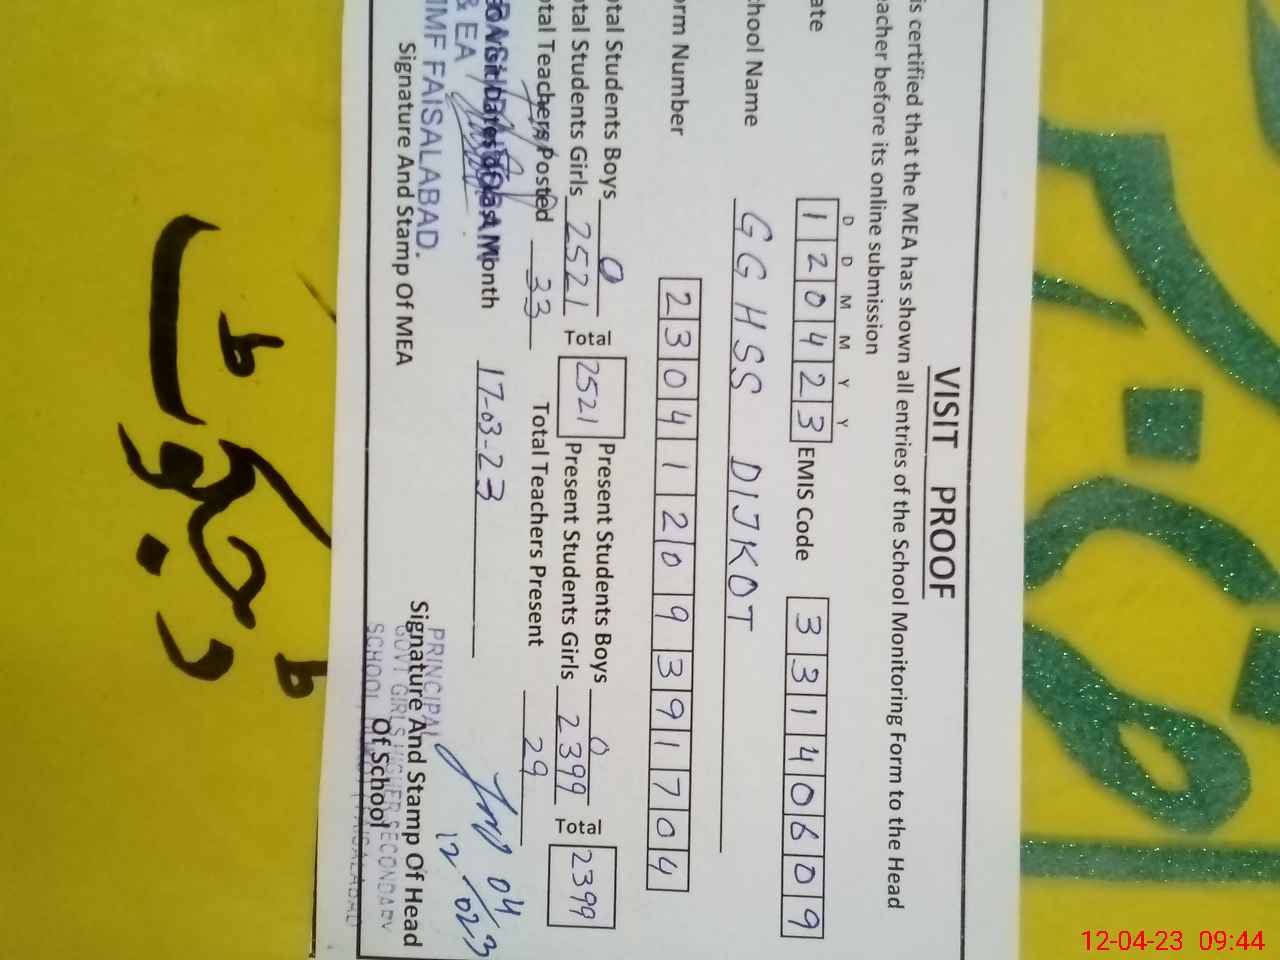 VISIT PROOF
is certified that the MEA has shown all entries of the School Monitoring Form to the Head
eacher before its online submission
D D M M Y Y
ate 120423 EMIS Code 33140609
chool Name GGHSS DIJKOT
orm Number 23041209391704
otal Students Boys 0 Present Students Boys 0
otal Students Girls 2521 Total 2521 Present Students Girls 2399 Total 2399
otal Teachers Posted 33 Total Teachers Present 29
Last Month 17-03-23
& EA
IMF FAISALABAD.
Signature And Stamp Of MEA
12/04/023
PRINCIPAL
Signature And Stamp Of Head
GOVT GIRLS HIGHER SECONDARY
Of School
SCHOOL FAISALABAD
ط
دجکوٹ
12-04-23 09:44